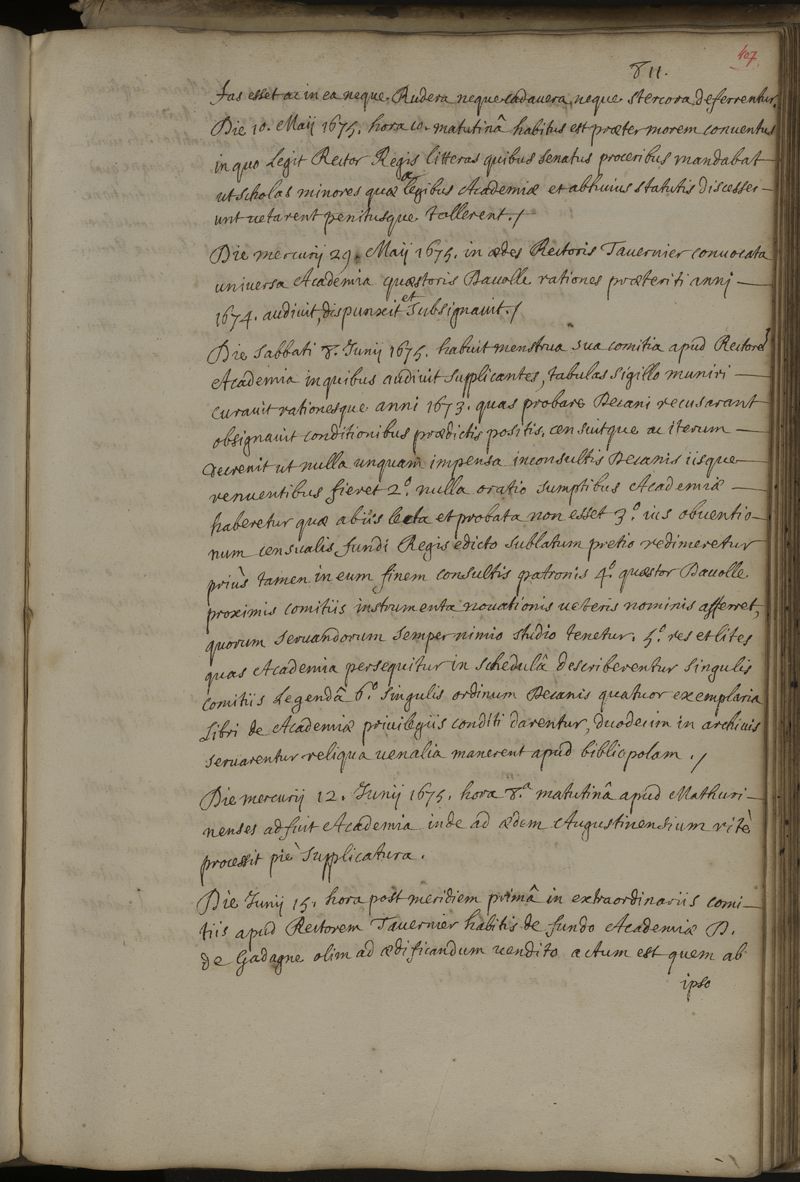 407
811.
fas esset ac in ea neque Rudera neque cadavera, neque stercora deferrentur.
Die 10. Maij 1675. hora 10. matutinâ habitus est præter morem conventus
in quo legit Rector Regis litteras quibus senatus proceribus mandabat
ut scholas minores quæ a legibus Academiæ et ab huius statutis discesser-
unt vetarent penitusque tollerent./
Die mercurij 29. Maij 1675. in ædes Rectoris Tavernier convocata
universa Academia quæstoris Davolle rationes præteriti anni
1674. audivit, dispunxit et subsignavit./
Die Sabbati 8. Junij 1675. habuit menstrua sua comitia apud Rectorē
Academia in quibus audivit supplicantes, tabulas sigillo muniri
curavit rationesque anni 1673. quas probare Decani recusarant
obsignavit conditionibus prædictis positis, censuitque ac iterum
decrevit ut nulla unquam impensa inconsultis Decanis iisque
renuentibus fieret 2.º nulla oratio sumptibus Academiæ
haberetur quæ ab iis lecta et probata non esset 3.º ius obventio-
num censualis fundi Regis edicto sublatum pretio redimeretur
priùs tamen in eum finem consultis patronis 4.º quæstor Davolle
proximis comitiis instrumenta novationis veteris nominis afferret,
quorum servandorum semper nimio studio tenetur. 5.º res et lites
quas Academia persequitur in schedulâ describerentur singulis
comitiis legendâ 6.º singulis ordinum Decanis quatuor exemplaria
libri de Academiæ privilegiis conditi darentur, duodecim in archivis
servarentur reliqua venalia manerent apud bibliopolam./
Die mercurij 12. Junij 1675. hora 8.ª matutinâ apud Mathuri-
nenses adfuit Academia inde ad ædem Augustinensium ritè
processit piè supplicatura.
Die Junij 15. hora post meridiem primâ in extraordinariis comi-
tiis apud Rectorem Tavernier habitis de fundo Academiæ D.
de Gadagne olim ad ædificandum vendito actum est quem ab
ipso